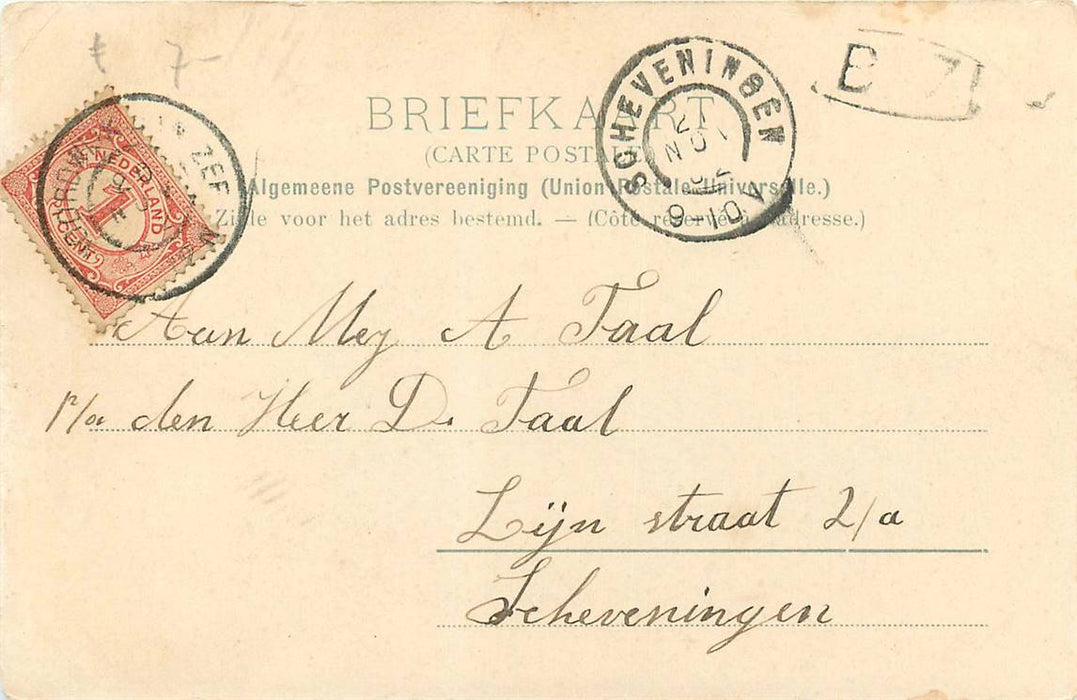 7-
BRIEFKAART
(CARTE POSTALE)
Algemeene Postvereeniging (Union Postale Universelle.)
Zijde voor het adres bestemd. — (Côté réservé à l'adresse.)
NEDERLAND
1
CENT
SCHEVENINGEN
9-10V
B 7
Aan Mej A Taal
p/a den Heer D. Taal
Lijn straat 2/a
Scheveningen